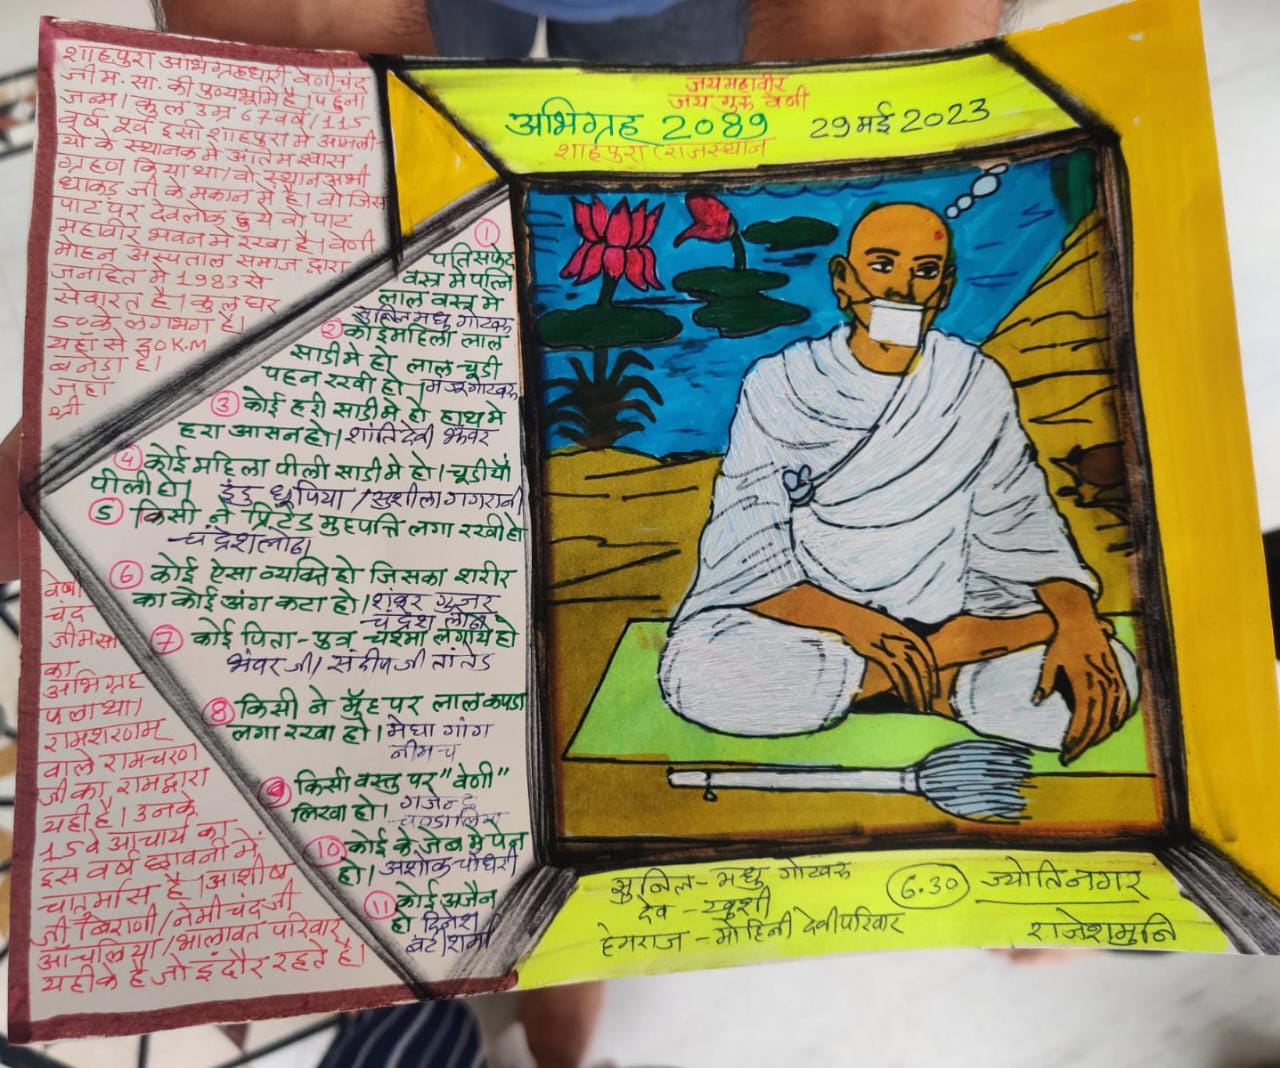 जय महावीर
जय गुरु वेणी
अभिग्रह 2089 29 मई 2023
शाहपुरा (राजस्थान
शाहपुरा अभिग्रहधारी वेणीचंद
जी म. सा. की पुण्यभूमि है। पहुना
जन्म। कुल उम्र 67 वर्ष। 115
वर्ष पूर्व इसी शाहपुरा मे आमली-
यो के स्थानक मे अंतिम श्वास
ग्रहण किया था। वो स्थान अभी
धाकड़ जी के मकान मे है। वो जिस
पाट पर देवलोक हुये वो पाट
महावीर भवन मे रखा है। वेणी
मोहन अस्पताल समाज द्वारा
जनहित मे 1983 से
सेवारत है। कुल घर
50 के लगभग है।
यहाँ से 30 K.M
बनेडा है।
जहाँ
श्री
वेणी
चंद
जी मसा
का
अभिग्रह
फला था।
रामशरणम्
वाले रामचरण
जी का रामद्वारा
यही है। उनके
15वे आचार्य का
इस वर्ष छावनी में
चातुर्मास है। आशीष
जी बिराणी/नेमीचंद जी
आँचलिया/भालावत परिवार
यही के है जो इंदौर रहते है।
1
पति सफेद
वस्त्र मे पत्नि
लाल वस्त्र मे
सुनिल मधु गोखरू
2 कोई महिला लाल
साडी मे हो लाल चूडी
पहन रखी हो। मंजू गोखरू
3 कोई हरी साडी मे हो हाथ मे
हरा आसन हो। शांति देवी झंवर
4 कोई महिला पीली साडी मे हो। चूडीयाँ
पीली हो। इंदु धूपिया/सुशीला गगरानी
5 किसी ने प्रिंटेड मुहपत्ति लगा रखी हो
चंद्रेश लोढा
6 कोई ऐसा व्यक्ति हो जिसका शरीर
का कोई अंग कटा हो। शंकर गुजर
चंद्रेश लोढा
7 कोई पिता-पुत्र चश्मा लगाये हो
भंवर जी/संदीप जी तांतेड
8 किसी ने मुँह पर लाल कपडा
लगा रखा हो। मेघा गांग
नीमच
9 किसी वस्तु पर "वेणी"
लिखा हो। गजेन्द्र
चण्डालिया
10 कोई के जेब मे पेन
हो। अशोक चौधरी
11 कोई अजैन
हो दिनेश
शर्मा
सुनिल-मधु गोखरू
देव-खुशी
हेमराज-मोहिनी देवी परिवार
6.30 ज्योतिनगर
राजेशमुनि